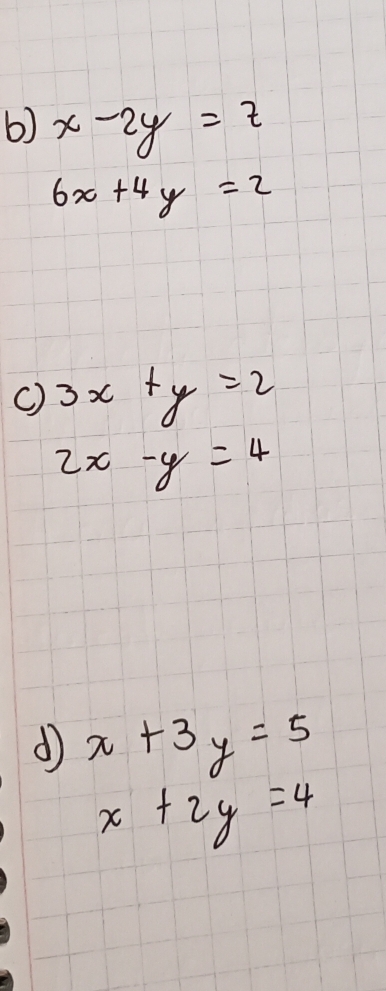 b) x - 2y = 7
6x + 4y = 2
c) 3x + y = 2
2x - y = 4
d) x + 3y = 5
x + 2y = 4